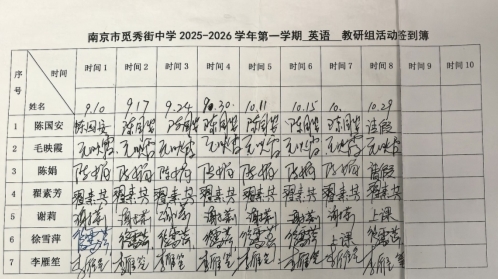 南京市觅秀街中学 2025-2026 学年第一学期 英语 教研组活动签到簿
序号 时间 姓名 时间 1 时间 2 时间 3 时间 4 时间 5 时间 6 时间 7 时间 8 时间 9 时间 10
9.10 9.17 9.24 9.30 10.11 10.15 10. 10.29
1 陈国安 陈国安 陈国安 陈国安 陈国安 陈国安 陈国安 陈国安 请假
2 毛映霞 毛映霞 毛映霞 毛映霞 毛映霞 毛映霞 毛映霞 毛映霞 毛映霞
3 陈娟 陈娟 陈娟 陈娟 陈娟 陈娟 陈娟 陈娟 请假
4 翟素芳 翟素芳 翟素芳 翟素芳 翟素芳 翟素芳 翟素芳 翟素芳 翟素芳
5 谢莉 谢莉 谢莉 谢莉 谢莉 谢莉 谢莉 谢莉 上课
6 徐雪萍 徐雪萍 徐雪萍 徐雪萍 徐雪萍 徐雪萍 徐雪萍 上课 徐雪萍
7 李雁笙 李雁笙 李雁笙 李雁笙 李雁笙 李雁笙 李雁笙 李雁笙 李雁笙